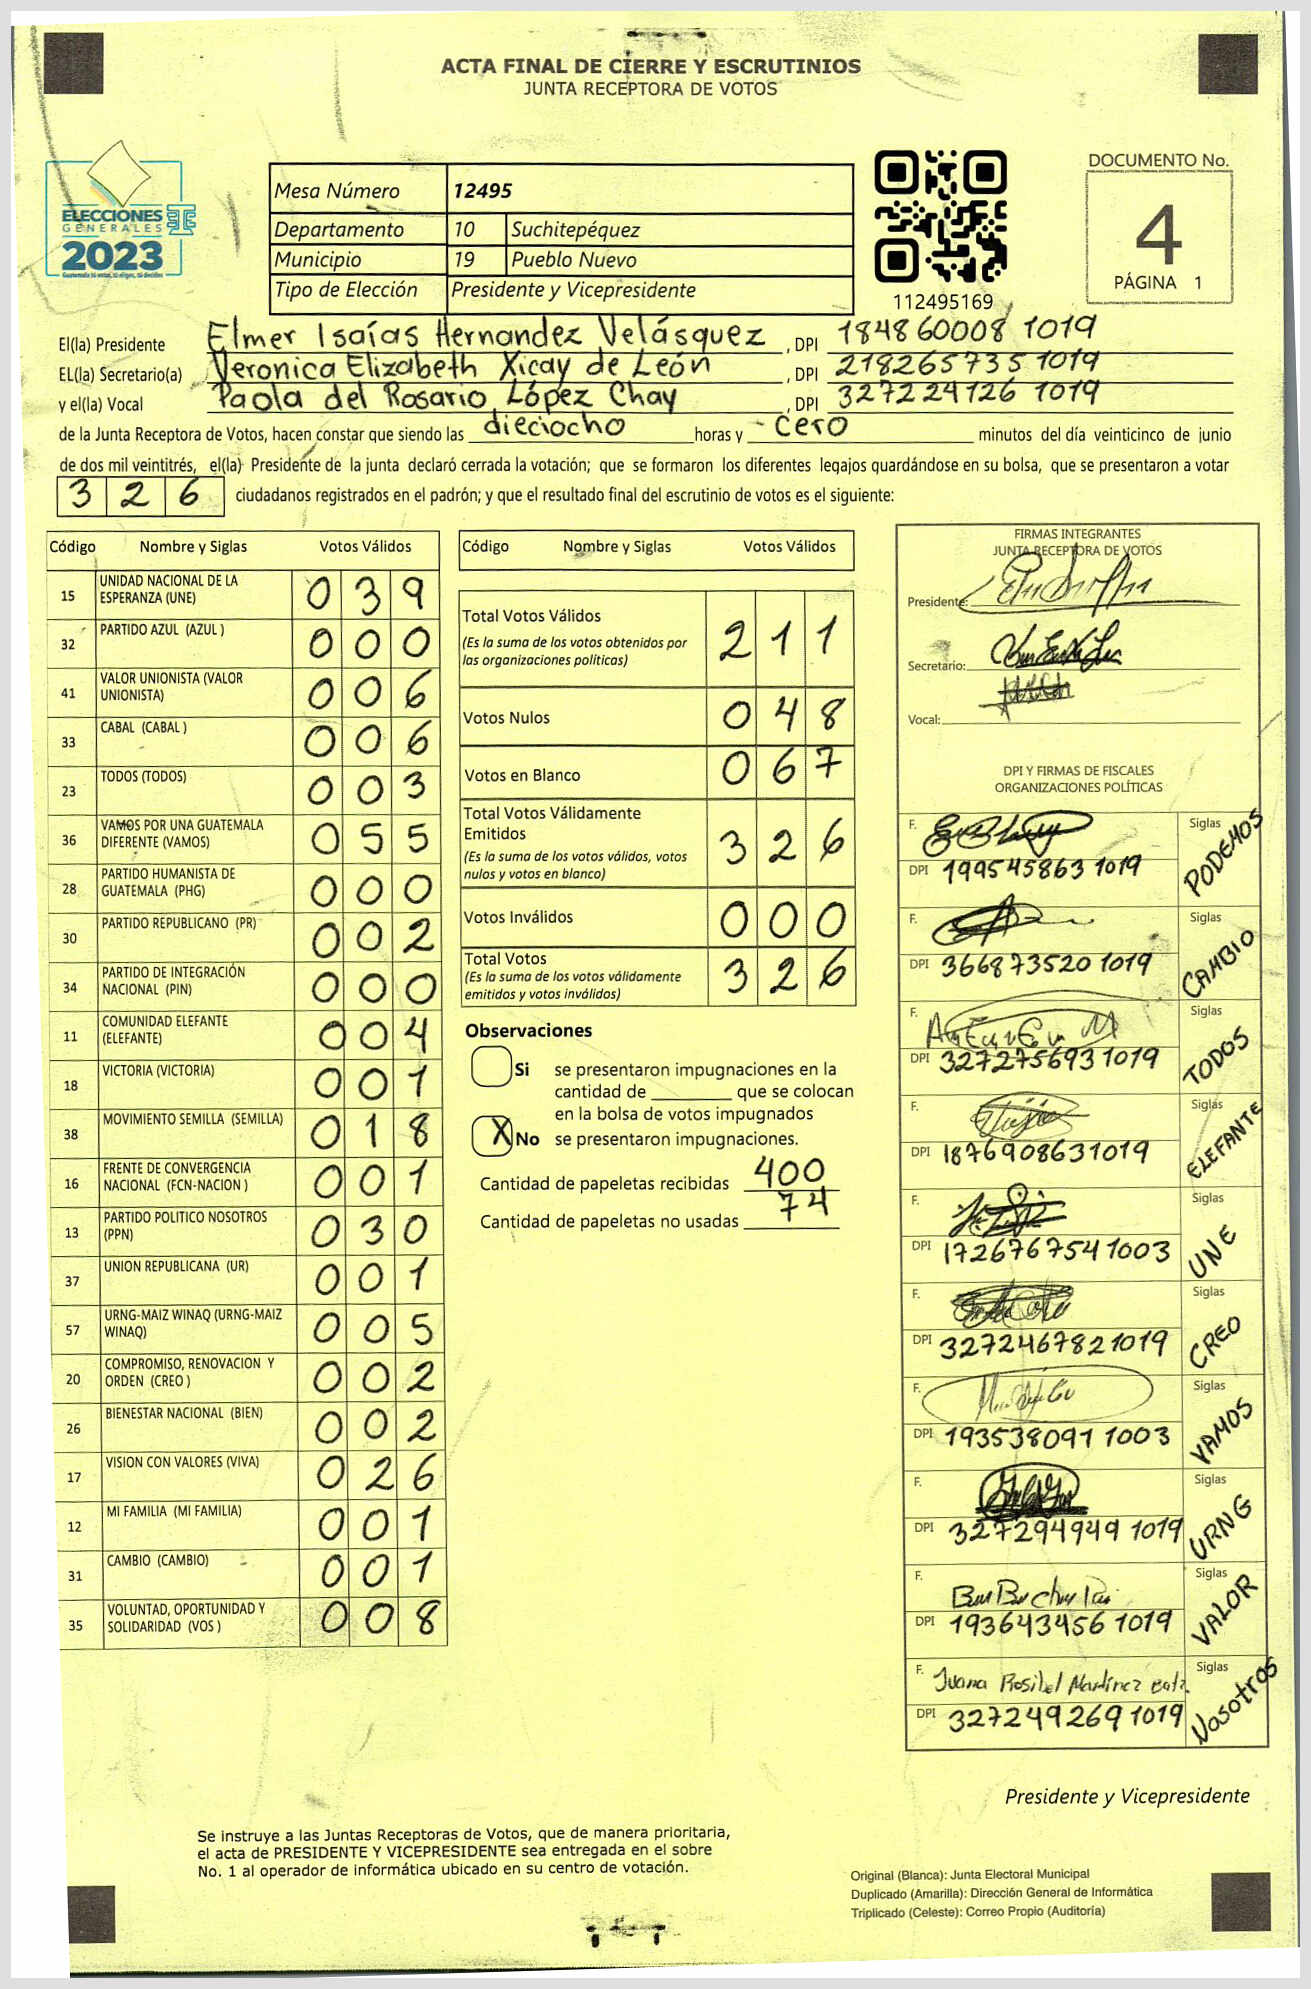 ACTA FINAL DE CIERRE Y ESCRUTINIOS
JUNTA RECEPTORA DE VOTOS
ELECCIONES
GENERALES
2023
Mesa Número 12495
Departamento 10 Suchitepéquez
Municipio 19 Pueblo Nuevo
Tipo de Elección Presidente y Vicepresidente
112495169
DOCUMENTO No.
4
PÁGINA 1
El(la) Presidente Elmer Isaías Hernandez Velásquez, DPI 184860008 1019
EL(la) Secretario(a) Veronica Elizabeth Xicay de León, DPI 218265735 1019
y el(la) Vocal Paola del Rosario López Chay, DPI 327224126 1019
de la Junta Receptora de Votos, hacen constar que siendo las dieciocho horas y cero minutos del día veinticinco de junio
de dos mil veintitrés, el(la) Presidente de la junta declaró cerrada la votación; que se formaron los diferentes legajos guardándose en su bolsa, que se presentaron a votar
326 ciudadanos registrados en el padrón; y que el resultado final del escrutinio de votos es el siguiente:
Código Nombre y Siglas Votos Válidos
15 UNIDAD NACIONAL DE LA ESPERANZA (UNE) 039
32 PARTIDO AZUL (AZUL ) 000
41 VALOR UNIONISTA (VALOR UNIONISTA) 006
33 CABAL (CABAL ) 006
23 TODOS (TODOS) 003
36 VAMOS POR UNA GUATEMALA DIFERENTE (VAMOS) 055
28 PARTIDO HUMANISTA DE GUATEMALA (PHG) 000
30 PARTIDO REPUBLICANO (PR) 002
34 PARTIDO DE INTEGRACIÓN NACIONAL (PIN) 000
11 COMUNIDAD ELEFANTE (ELEFANTE) 004
18 VICTORIA (VICTORIA) 001
38 MOVIMIENTO SEMILLA (SEMILLA) 018
16 FRENTE DE CONVERGENCIA NACIONAL (FCN-NACION ) 001
13 PARTIDO POLITICO NOSOTROS (PPN) 030
37 UNION REPUBLICANA (UR) 001
57 URNG-MAIZ WINAQ (URNG-MAIZ WINAQ) 005
20 COMPROMISO, RENOVACION Y ORDEN (CREO ) 002
26 BIENESTAR NACIONAL (BIEN) 002
17 VISION CON VALORES (VIVA) 026
12 MI FAMILIA (MI FAMILIA) 001
31 CAMBIO (CAMBIO) 001
35 VOLUNTAD, OPORTUNIDAD Y SOLIDARIDAD (VOS ) 008
Código Nombre y Siglas Votos Válidos
Total Votos Válidos 211
(Es la suma de los votos obtenidos por
las organizaciones políticas)
Votos Nulos 048
Votos en Blanco 067
Total Votos Válidamente
Emitidos 326
(Es la suma de los votos válidos, votos
nulos y votos en blanco)
Votos Inválidos 000
Total Votos 326
(Es la suma de los votos válidamente
emitidos y votos inválidos)
Observaciones
Si se presentaron impugnaciones en la
cantidad de ________ que se colocan
en la bolsa de votos impugnados
X No se presentaron impugnaciones.
Cantidad de papeletas recibidas 400
Cantidad de papeletas no usadas 74
FIRMAS INTEGRANTES
JUNTA RECEPTORA DE VOTOS
Presidente:
Secretario:
Vocal:
DPI Y FIRMAS DE FISCALES
ORGANIZACIONES POLÍTICAS
F. Siglas PODEMOS
DPI 199545863 1019
F. Siglas CAMBIO
DPI 366873520 1019
F. Siglas TODOS
DPI 327275693 1019
F. Siglas ELEFANTE
DPI 1876908631019
F. Siglas UNE
DPI 1726767541003
F. Siglas CREO
DPI 3272467821019
F. Siglas VAMOS
DPI 193538091 1003
F. Siglas URNG
DPI 327294949 1019
F. Siglas VALOR
DPI 193643456 1019
F. Juana Rosibel Martínez Siglas Nosotros
DPI 327249269 1019
Presidente y Vicepresidente
Se instruye a las Juntas Receptoras de Votos, que de manera prioritaria,
el acta de PRESIDENTE Y VICEPRESIDENTE sea entregada en el sobre
No. 1 al operador de informática ubicado en su centro de votación.
Original (Blanca): Junta Electoral Municipal
Duplicado (Amarilla): Dirección General de Informática
Triplicado (Celeste): Correo Propio (Auditoría)